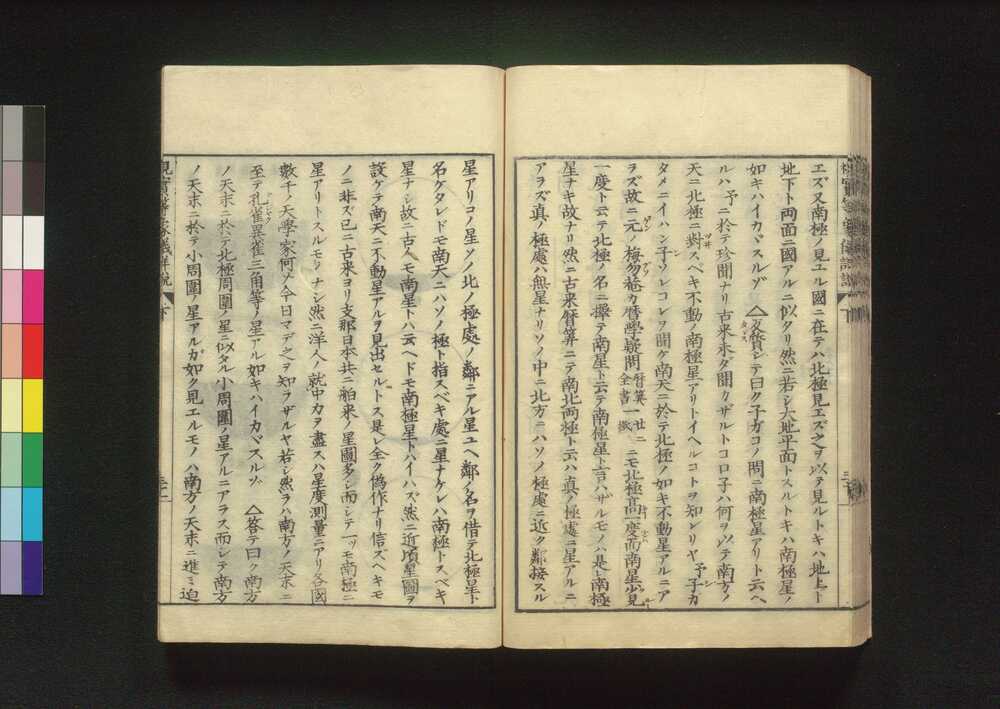 エズ又南極ノ見エル國ニ在テハ北極見エズ之ヲ以テ見ルトキハ地上ト
地下ト両面ニ國アルニ似タリ然ニ若シ大地平面トスルトキハ南極星ノ
如キハイカヾスルゾ △反質シテ曰ク子ガコノ問ニ南極星アリト云ヘ
ルハ予ニ於テ珍聞ナリ古来未タ聞カザルトコロ子ハ何ヲ以テ南方ノ
天ニ北極ニ對スベキ不動ノ南極星アリトイヘルコトヲ知シリヤ予子カ
タメニイハン子ソレコレヲ聞ケ南天ニ於テ北極ノ如キ不動星アルニア
ラズ故ニ元ノ梅勿菴カ暦學疑問暦算全書一廿ニニモ北極高一度而南星少見
一度ト云テ北極ノ名ニ擇テ南星ト云テ南極星ト言ハザルモノハ是レ南極
星ナキ故ナリ然ニ古来暦算ニテ南北両極ト云ハ真ノ極處ニ星アルニ
アラズ真ノ極處ハ無星ナリソノ中ニ北方ニハソノ極處ニ近ク鄰接スル
星アリコノ星ソノ北ノ極處ノ鄰ニアル星ユヘ鄰ノ名ヲ借テ北極星ト
名ケタレドモ南天ニハソノ極ト指スベキ處ニ星ナケレハ南極トスベキ
星ナシ故ニ古人モ南星トハ云ヘドモ南極星トハイハズ然ニ近頃星圖ヲ
設ケテ南天ニ不動星アルヲ見出セルトス是レ全ク偽作ナリ信ズヘキモ
ノニ非ズ已ニ古来ヨリ支那日本共ニ舶来ノ星圖多シ而シテ一ツモ南極ニ
星アリトスルモノナシ然ニ洋人ノ就中力ヲ盡スハ星度測量ニアリ各國
數千ノ天學家何ゾ今日マデ之ヲ知ラザルヤ若シ然ラハ南方ノ天末ニ
至テ孔雀異雀三角等ノ星アル如キハイカヾスルゾ △答テ曰ク南方
ノ天末ニ於テ北極周圍ノ星ニ似タル小周圍ノ星アルニアラス而シテ南方
ノ天末ニ於テ小周圍ノ星アルガ如ク見エルモノハ南方ノ天末ニ進ミ迫